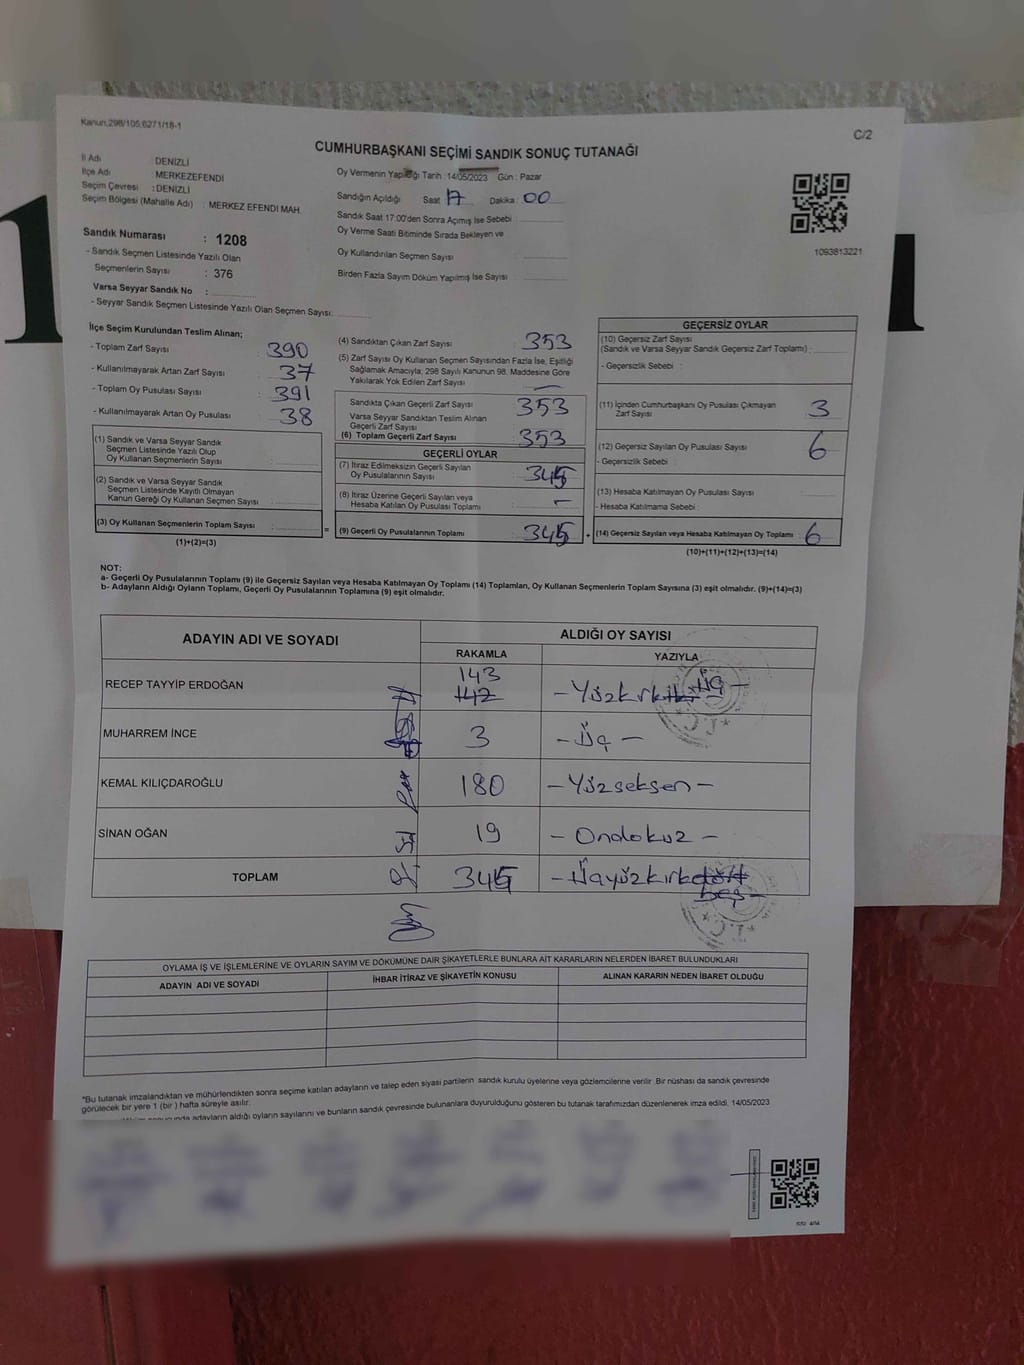 Kanun,298/105,6271/18-1
C/2
CUMHURBAŞKANI SEÇİMİ SANDIK SONUÇ TUTANAĞI
İl Adı DENİZLİ
İlçe Adı MERKEZEFENDİ
Seçim Çevresi : DENİZLİ
Seçim Bölgesi (Mahalle Adı) : MERKEZ EFENDİ MAH.
Sandık Numarası : 1208
- Sandık Seçmen Listesinde Yazılı Olan
Seçmenlerin Sayısı : 376
Varsa Seyyar Sandık No :
- Seyyar Sandık Seçmen Listesinde Yazılı Olan Seçmen Sayısı:
Oy Vermenin Yapıldığı Tarih : 14/05/2023 Gün : Pazar
Sandığın Açıldığı Saat 17 Dakika : 00
Sandık Saat 17:00'den Sonra Açımış İse Sebebi :
Oy Verme Saati Bitiminde Sırada Bekleyen ve
Oy Kullandırılan Seçmen Sayısı :
Birden Fazla Sayım Döküm Yapılmış İse Sayısı :
1093813221
İlçe Seçim Kurulundan Teslim Alınan;
- Toplam Zarf Sayısı : 390
- Kullanılmayarak Artan Zarf Sayısı : 37
- Toplam Oy Pusulası Sayısı : 391
- Kullanılmayarak Artan Oy Pusulası : 38
(1) Sandık ve Varsa Seyyar Sandık
Seçmen Listesinde Yazılı Olup
Oy Kullanan Seçmenlerin Sayısı :
(2) Sandık ve Varsa Seyyar Sandık
Seçmen Listesinde Kayıtlı Olmayan
Kanun Gereği Oy Kullanan Seçmen Sayısı :
(3) Oy Kullanan Seçmenlerin Toplam Sayısı : =
(1)+(2)=(3)
(4) Sandıktan Çıkan Zarf Sayısı : 353
(5) Zarf Sayısı Oy Kullanan Seçmen Sayısından Fazla İse, Eşitliği
Sağlamak Amacıyla; 298 Sayılı Kanunun 98. Maddesine Göre
Yakılarak Yok Edilen Zarf Sayısı : —
Sandıkta Çıkan Geçerli Zarf Sayısı : 353
Varsa Seyyar Sandıktan Teslim Alınan
Geçerli Zarf Sayısı :
(6) Toplam Geçerli Zarf Sayısı : 353
GEÇERLİ OYLAR
(7) İtiraz Edilmeksizin Geçerli Sayılan
Oy Pusulalarının Sayısı : 345
(8) İtiraz Üzerine Geçerli Sayılan veya
Hesaba Katılan Oy Pusulası Toplamı : -
(9) Geçerli Oy Pusulalarının Toplamı : 345 +
GEÇERSİZ OYLAR
(10) Geçersiz Zarf Sayısı
(Sandık ve Varsa Seyyar Sandık Geçersiz Zarf Toplamı) :
- Geçersizlik Sebebi :
(11) İçinden Cumhurbaşkanı Oy Pusulası Çıkmayan
Zarf Sayısı : 3
(12) Geçersiz Sayılan Oy Pusulası Sayısı : 6
- Geçersizlik Sebebi :
(13) Hesaba Katılmayan Oy Pusulası Sayısı :
- Hesaba Katılmama Sebebi :
(14) Geçersiz Sayılan veya Hesaba Katılmayan Oy Toplamı : 6
(10)+(11)+(12)+(13)=(14)
NOT:
a- Geçerli Oy Pusulalarının Toplamı (9) ile Geçersiz Sayılan veya Hesaba Katılmayan Oy Toplamı (14) Toplamları, Oy Kullanan Seçmenlerin Toplam Sayısına (3) eşit olmalıdır. (9)+(14)=(3)
b- Adayların Aldığı Oyların Toplamı, Geçerli Oy Pusulalarının Toplamına (9) eşit olmalıdır.
ADAYIN ADI VE SOYADI ALDIĞI OY SAYISI
RAKAMLA YAZIYLA
RECEP TAYYİP ERDOĞAN 143 142 - Yüzkırkiki üç -
MUHARREM İNCE 3 - Üç -
KEMAL KILIÇDAROĞLU 180 - Yüzseksen -
SİNAN OĞAN 19 - Ondokuz -
TOPLAM 345 - Üçyüzkırkdört beş -
OYLAMA İŞ VE İŞLEMLERİNE VE OYLARIN SAYIM VE DÖKÜMÜNE DAİR ŞİKAYETLERLE BUNLARA AİT KARARLARIN NELERDEN İBARET BULUNDUKLARI
ADAYIN ADI VE SOYADI İHBAR İTİRAZ VE ŞİKAYETİN KONUSU ALINAN KARARIN NEDEN İBARET OLDUĞU
*Bu tutanak imzalandıktan ve mühürlendikten sonra seçime katılan adayların ve talep eden siyasi partilerin sandık kurulu üyelerine veya gözlemcilerine verilir. Bir nüshası da sandık çevresinde
görülecek bir yere 1 (bir ) hafta süreyle asılır.
adayların aldığı oyların sayılarını ve bunların sandık çevresinde bulunanlara duyurulduğunu gösteren bu tutanak tarafımızdan düzenlenerek imza edildi. 14/05/2023